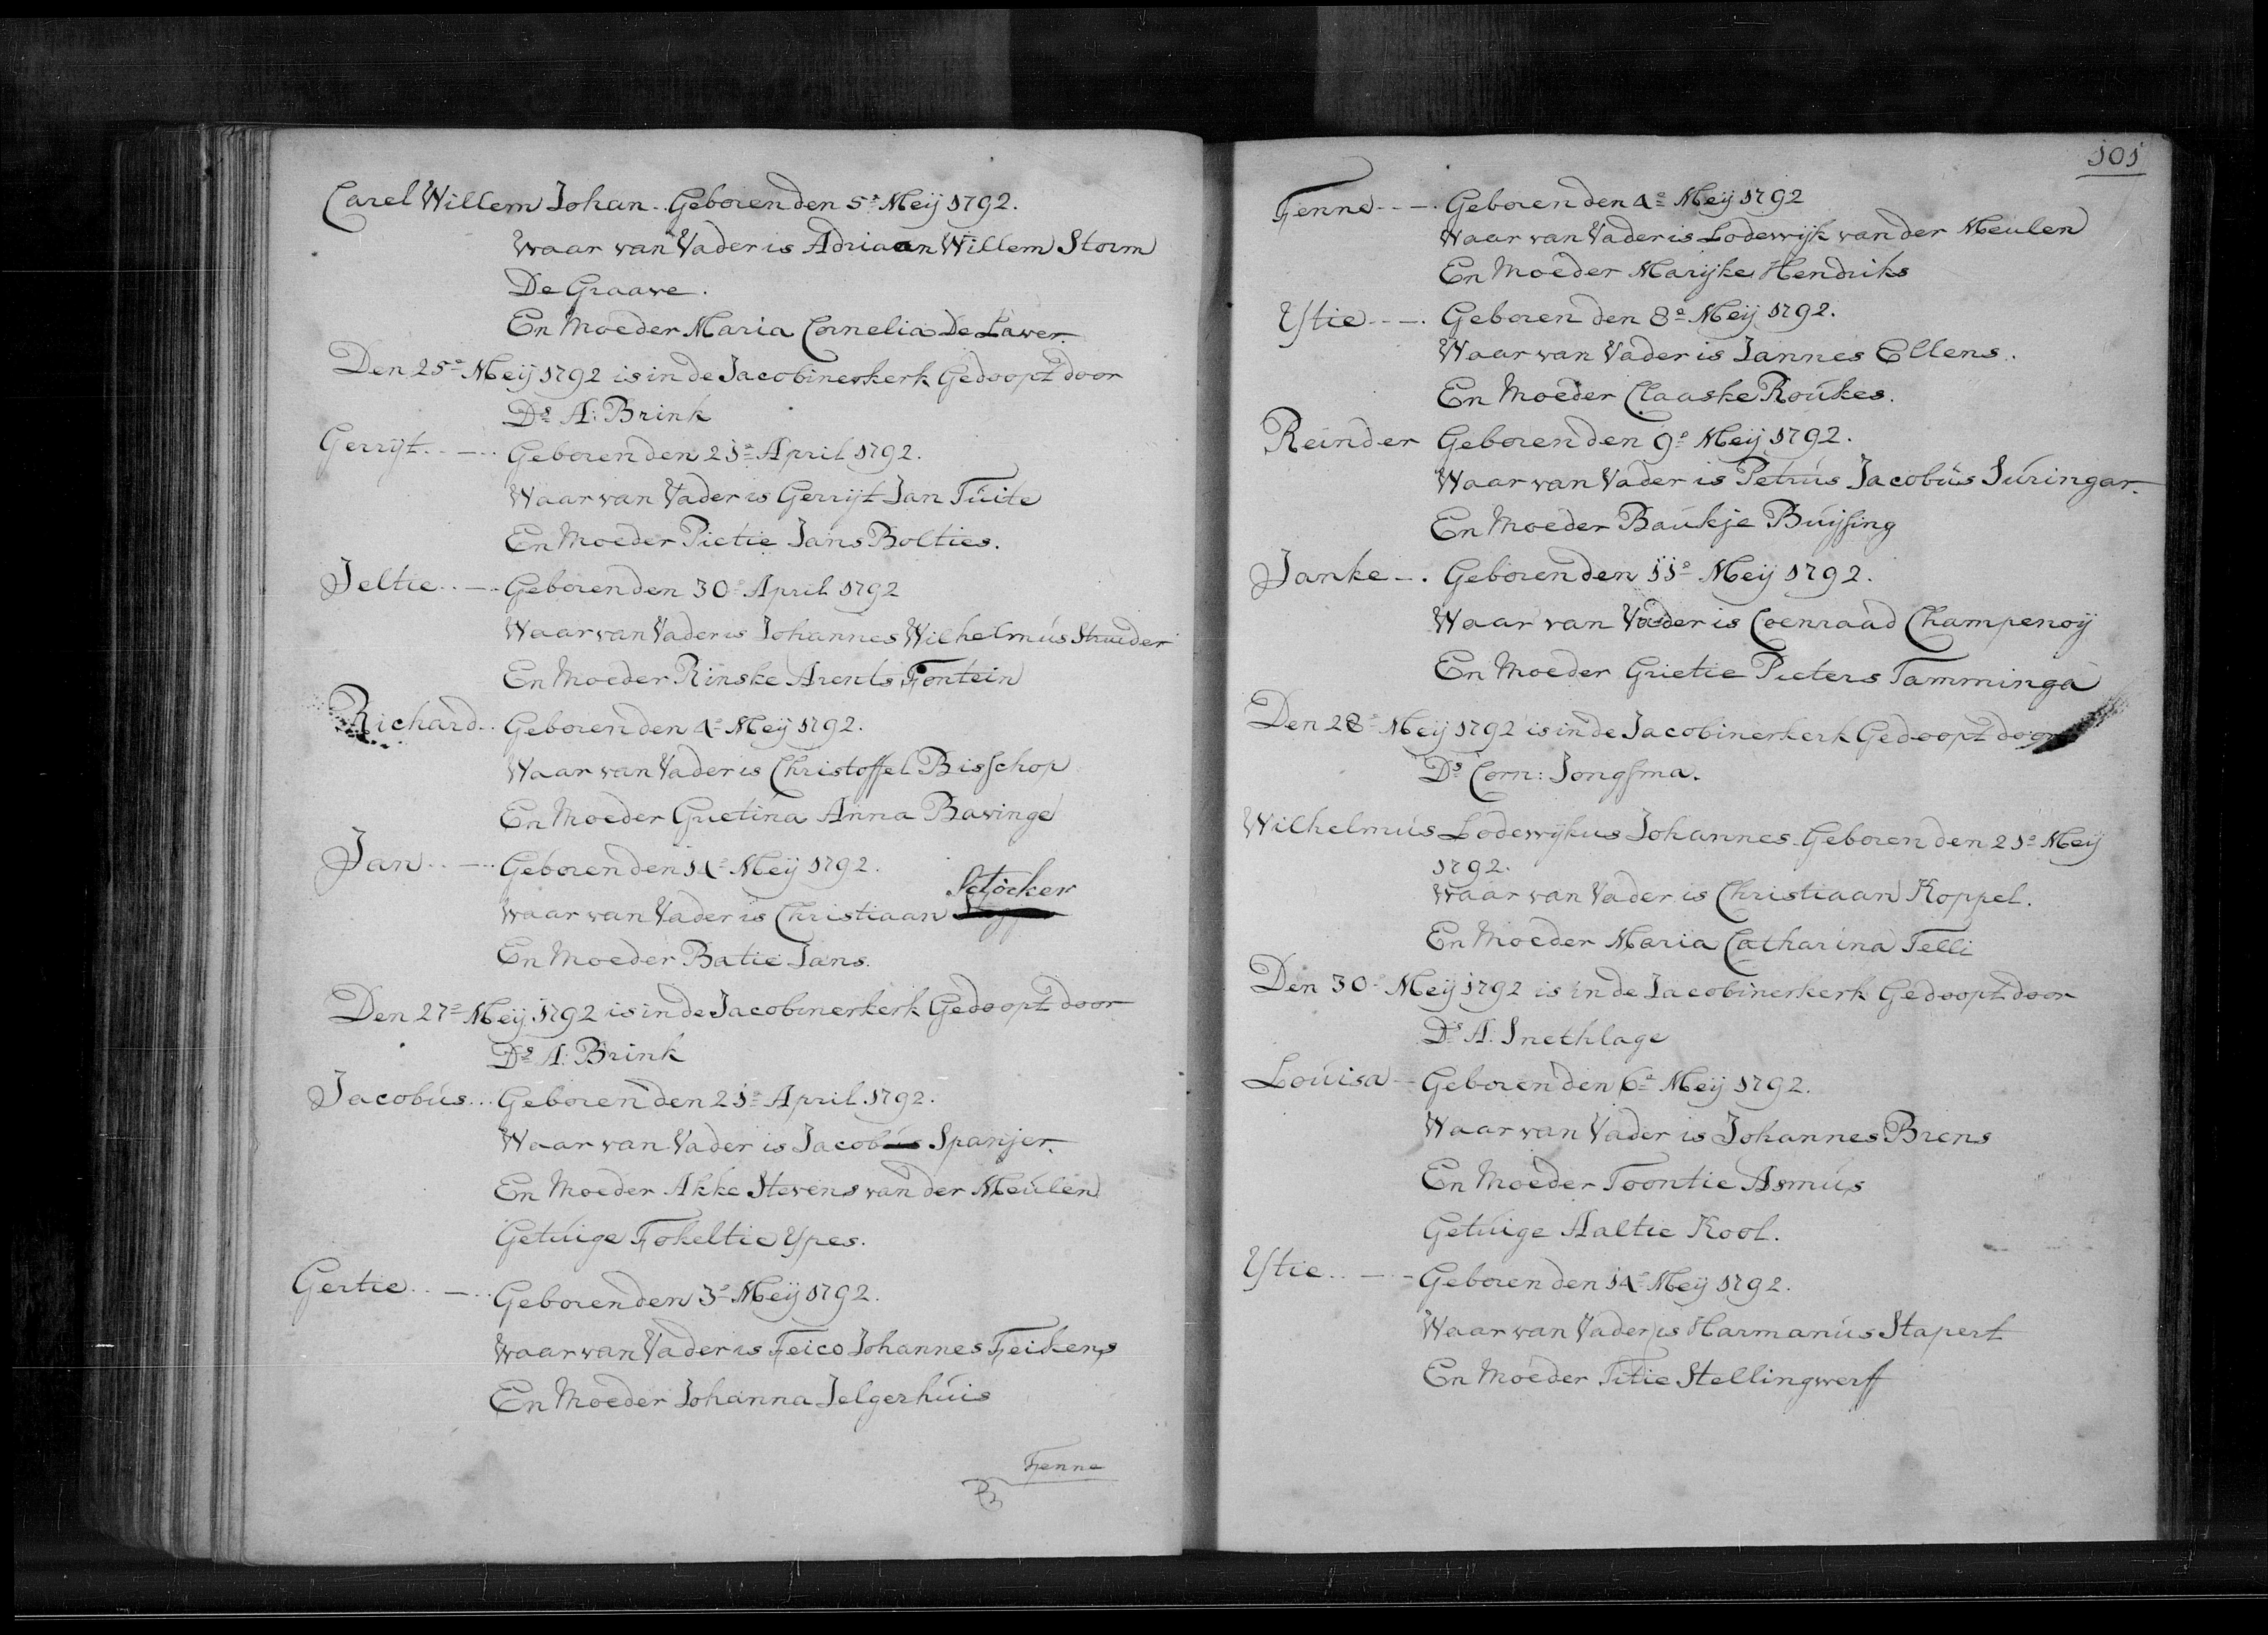 Carel Willem Johan.. Geboren den 5e Meij 1792.
Waar van Vader is Adriaan Willem Storm
De Graave.
En Moeder Maria Cornelia De Laver.
Den 25e Meij 1792 is in de Jacobinerkerk Gedoopt door
Ds A: Brink
Gerrijt..—.. Geboren den 21e April 1792.
Waar van Vader is Gerrijt Jan Tuite
En Moeder Pietie Jans Bolties.
Jeltie..—.. Geboren den 30e April 1792
Waar van Vader is Johannes Wilhelmus Struider
En Moeder Rinske Arents Fontein
Richard.. Geboren den 4e Meij 1792.
Waar van Vader is Christoffel Bisschop
En Moeder Grietina Anna Bavinge
Jan..—.. Geboren den 14e Meij 1792.
Stöcker
Waar van Vader is Christiaan
En Moeder Batie Jans.
Den 27e Meij 1792 is in de Jacobinerkerk Gedoopt door
Ds A: Brink
Jacobus... Geboren den 21e April 1792.
Waar van Vader is Jacobus Spanjer.
En Moeder Akke Stevens van der Meulen
Getuige Fokeltie Ypes.
Gertie..—.. Geboren den 3e Meij 1792.
Waar van Vader is Feico Johannes Feikens
En Moeder Johanna Jelgerhuis
Fenne
101
Fenne..—. Geboren den 4e Meij 1792
Waar van Vader is Lodewijk van der Meulen
En Moeder Marijke Hendriks
Ytie..—. Geboren den 8e Meij 1792.
Waar van Vader is Jannes Ellens.
En Moeder Claaske Roukes.
Reinder Geboren den 9e Meij 1792.
Waar van Vader is Petrus Jacobus Suringar.
En Moeder Baukje Buijsing
Janke—. Geboren den 11e Meij 1792.
Waar van Vader is Coenraad Champenoij
En Moeder Grietie Pieters Tamminga
Den 28e Meij 1792 is in de Jacobinerkerk Gedoopt door
Ds Corn: Jongsma.
Wilhelmus Lodewijkus Johannes Geboren den 21e Meij
1792.
Waar van Vader is Christiaan Koppel.
En Moeder Maria Catharina Telli
Den 30e Meij 1792 is in de Jacobinerkerk Gedoopt door
Ds A. Snethlage
Louisa— Geboren den 6e Meij 1792.
Waar van Vader is Johannes Brens
En Moeder Toontie Asmus
Getuige Aaltie Kool.
Ytie..—.. Geboren den 14e Meij 1792.
Waar van Vader is Harmanus Stapert
En Moeder Titie Stellingwerf